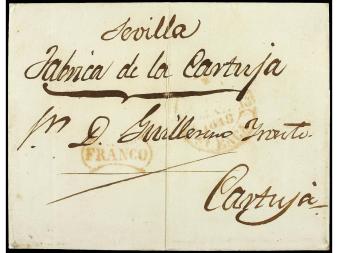 Sevilla
Fabrica de la Cartuja
Sr. D. Guillermo
FRANCO
Cartuja